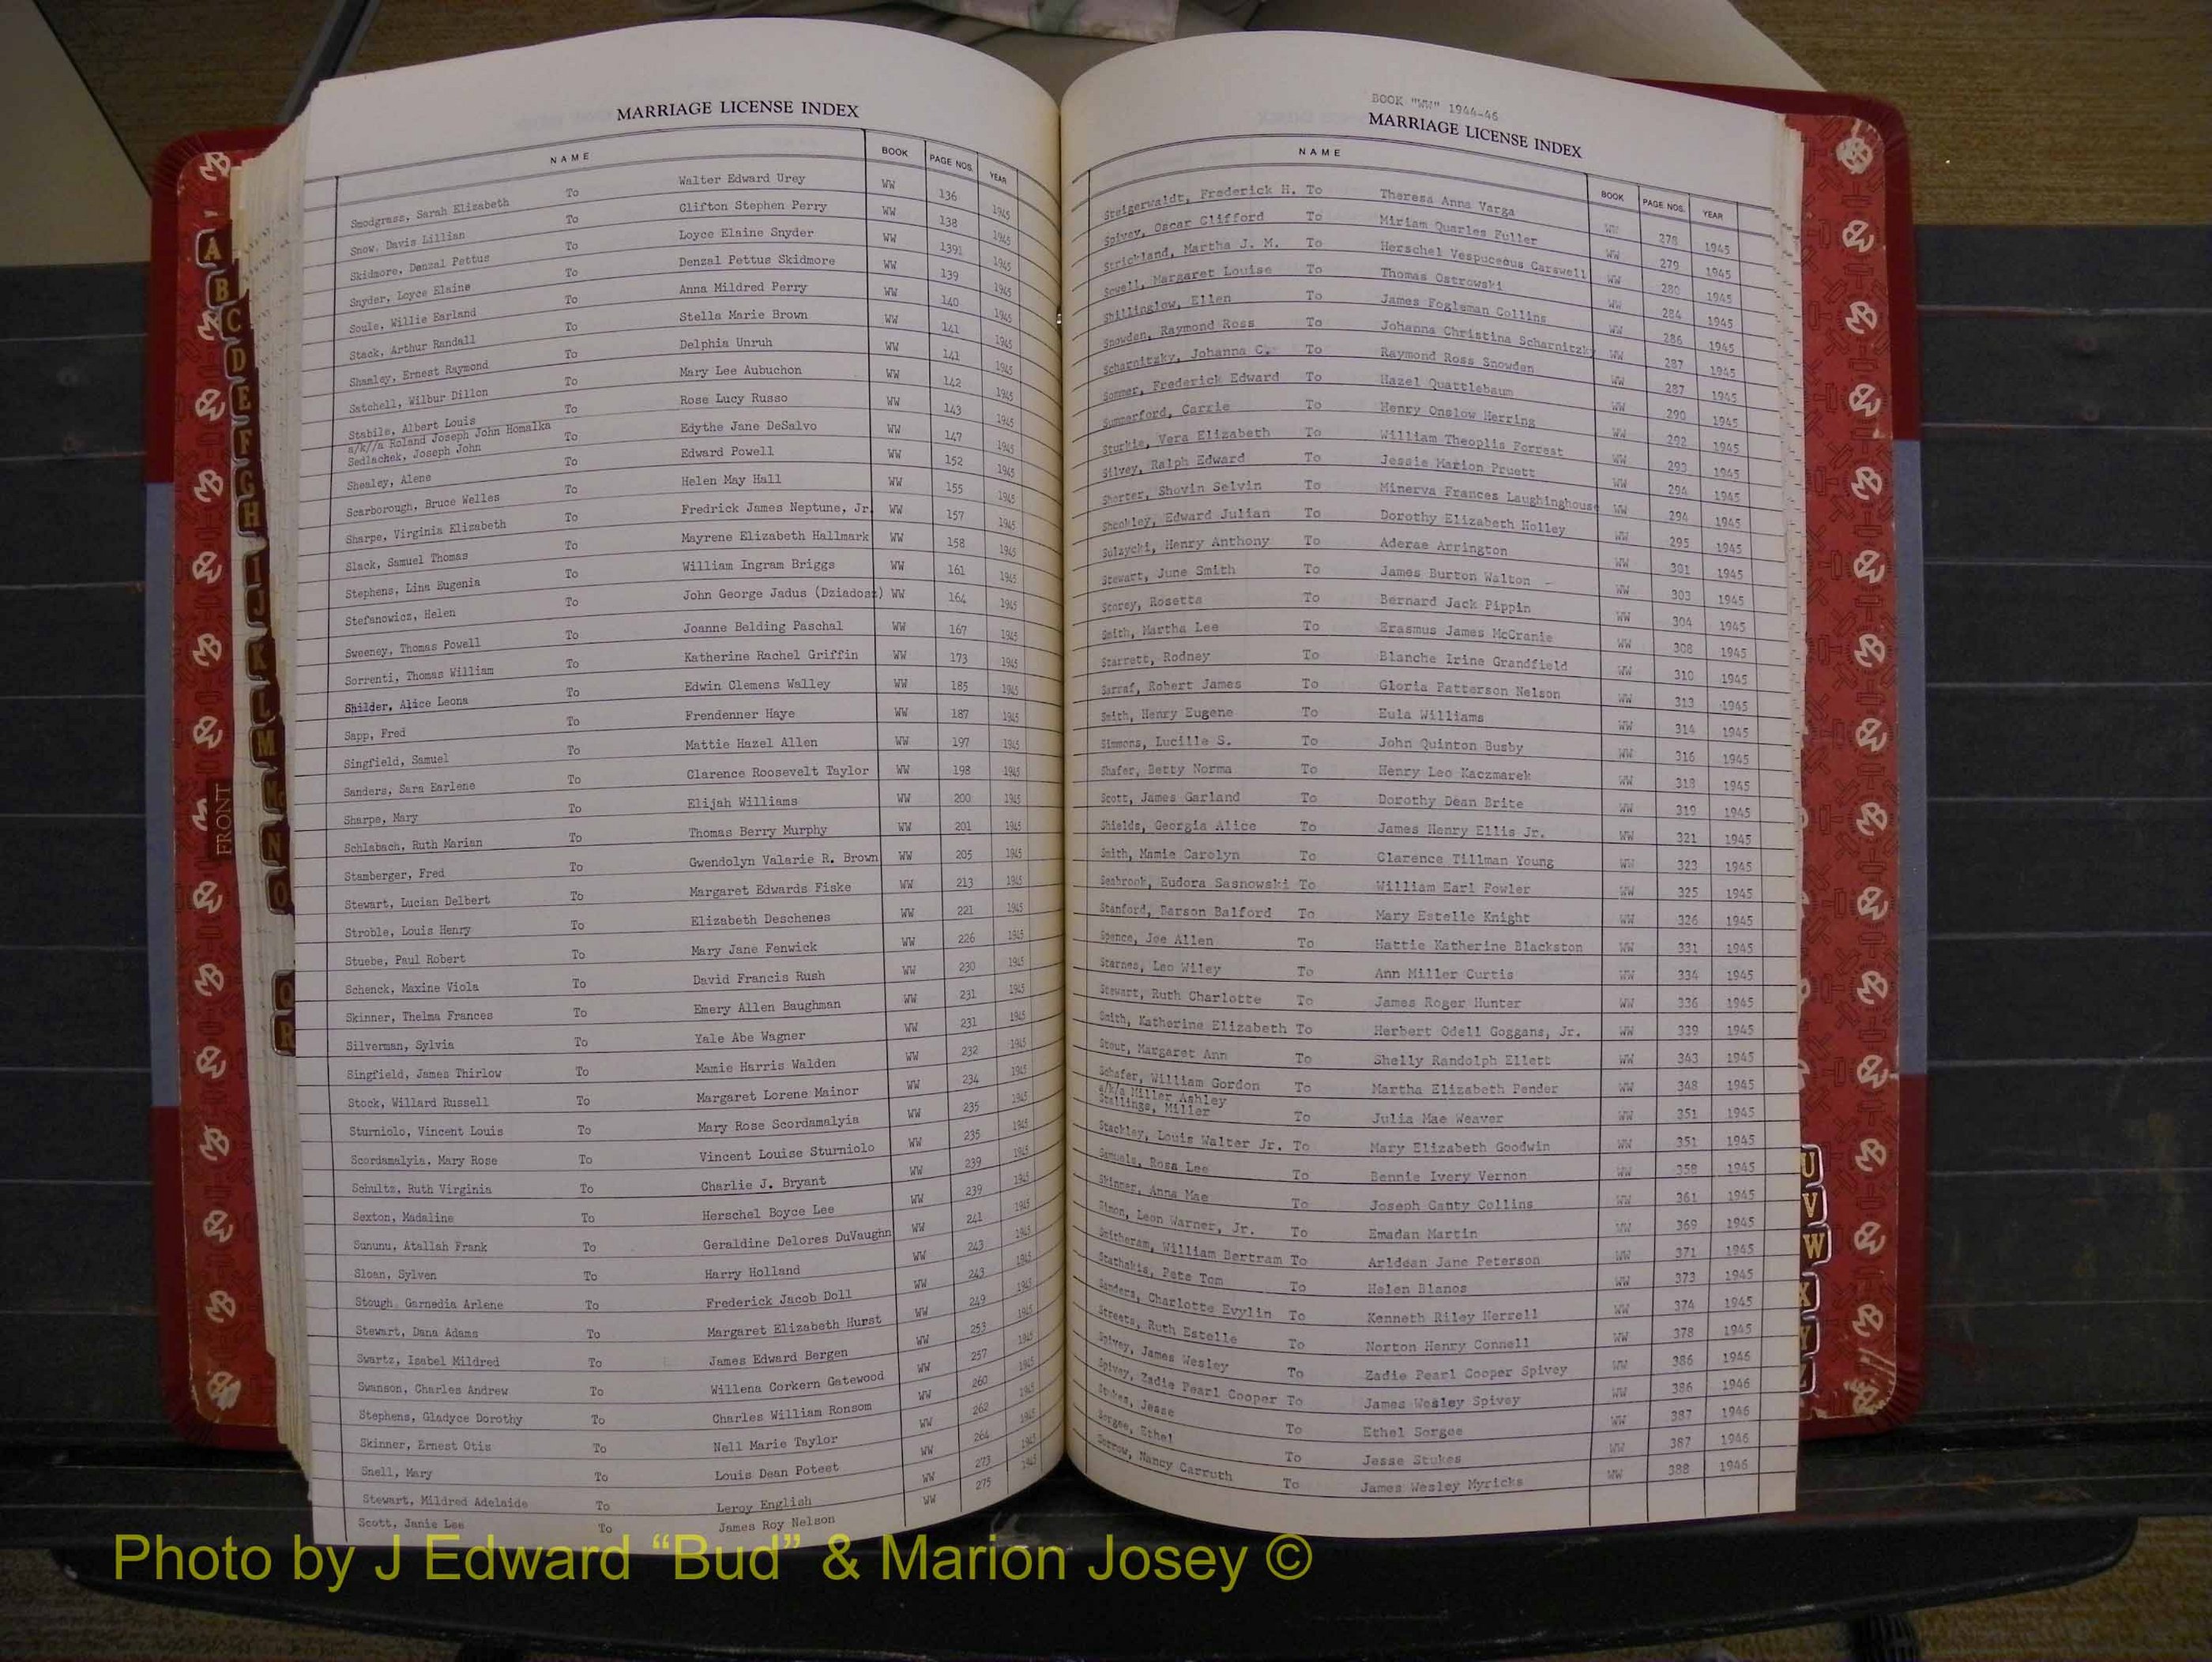 MARRIAGE LICENSE INDEX
NAME BOOK PAGE NOS. YEAR
Snodgrass, Sarah Elizabeth To Walter Edward Urey WW 136 1945
Snow, Davis Lillian To Clifton Stephen Perry WW 138 1945
Skidmore, Denzal Pettus To Loyce Elaine Snyder WW 1391 1945
Snyder, Loyce Elaine To Denzal Pettus Skidmore WW 139 1945
Soule, Willie Earland To Anna Mildred Perry WW 140 1945
Stack, Arthur Randall To Stella Marie Brown WW 141 1945
Shanley, Ernest Raymond To Delphia Unruh WW 141 1945
Satchell, Wilbur Dillon To Mary Lee Aubuchon WW 142 1945
Stabile, Albert Louis To Rose Lucy Russo WW 143 1945
a/k//a Roland Joseph John Homalka
Sedlachek, Joseph John To Edythe Jane DeSalvo WW 147 1945
Shealey, Alene To Edward Powell WW 152 1945
Scarborough, Bruce Welles To Helen May Hall WW 155 1945
Sharpe, Virginia Elizabeth To Fredrick James Neptune, Jr WW 157 1945
Slack, Samuel Thomas To Mayrene Elizabeth Hallmark WW 158 1945
Stephens, Lina Eugenia To William Ingram Briggs WW 161 1945
Stefanowicz, Helen To John George Jadus (Dziadosz) WW 164 1945
Sweeney, Thomas Powell To Joanne Belding Paschal WW 167 1945
Sorrenti, Thomas William To Katherine Rachel Griffin WW 173 1945
Shilder, Alice Leona To Edwin Clemens Walley WW 185 1945
Sapp, Fred To Frendenner Haye WW 187 1945
Singfield, Samuel To Mattie Hazel Allen WW 197 1945
Sanders, Sara Earlene To Clarence Roosevelt Taylor WW 198 1945
Sharpe, Mary To Elijah Williams WW 200 1945
Schlabach, Ruth Marian To Thomas Berry Murphy WW 201 1945
Stamberger, Fred To Gwendolyn Valarie R. Brown WW 205 1945
Stewart, Lucian Delbert To Margaret Edwards Fiske WW 213 1945
Stroble, Louis Henry To Elizabeth Deschenes WW 221 1945
Stuebe, Paul Robert To Mary Jane Fenwick WW 226 1945
Schenck, Maxine Viola To David Francis Rush WW 230 1945
Skinner, Thelma Frances To Emery Allen Baughman WW 231 1945
Silverman, Sylvia To Yale Abe Wagner WW 231 1945
Singfield, James Thirlow To Mamie Harris Walden WW 232 1945
Stock, Willard Russell To Margaret Lorene Mainor WW 234 1945
Sturniolo, Vincent Louis To Mary Rose Scordamalyia WW 235 1945
Scordamalyia, Mary Rose To Vincent Louise Sturniolo WW 235 1945
Schultz, Ruth Virginia To Charlie J. Bryant WW 239 1945
Sexton, Madaline To Herschel Boyce Lee WW 239 1945
Sununu, Atallah Frank To Geraldine Delores DuVaughn WW 241 1945
Sloan, Sylven To Harry Holland WW 243 1945
Stough, Garnedia Arlene To Frederick Jacob Doll WW 243 1945
Stewart, Dana Adams To Margaret Elizabeth Hurst WW 249 1945
Swartz, Isabel Mildred To James Edward Bergen WW 253 1945
Swanson, Charles Andrew To Willena Corkern Gatewood WW 257 1945
Stephens, Gladyce Dorothy To Charles William Ronsom WW 260 1945
Skinner, Ernest Otis To Nell Marie Taylor WW 262 1945
Snell, Mary To Louis Dean Poteet WW 264 1945
Stewart, Mildred Adelaide To Leroy English WW 273 1945
Scott, Janie Lee To James Roy Nelson WW 275 1945
BOOK "WW" 1944-46
MARRIAGE LICENSE INDEX
NAME BOOK PAGE NOS. YEAR
Steigerwaldt, Frederick H. To Theresa Anna Varga WW 278 1945
Spivey, Oscar Clifford To Miriam Quarles Fuller WW 279 1945
Strickland, Martha J. M. To Herschel Vespuceous Carswell WW 280 1945
Sewell, Margaret Louise To Thomas Ostrowski WW 284 1945
Shillinglow, Ellen To James Fogleman Collins WW 286 1945
Snowden, Raymond Ross To Johanna Christina Scharnitzky WW 287 1945
Scharnitzky, Johanna C. To Raymond Ross Snowden WW 287 1945
Sommer, Frederick Edward To Hazel Quattlebaum WW 290 1945
Summerford, Carrie To Henry Onslow Herring WW 292 1945
Sturkie, Vera Elizabeth To William Theoplis Forrest WW 293 1945
Silvey, Ralph Edward To Jessie Marion Pruett WW 294 1945
Shorter, Shovin Selvin To Minerva Frances Laughinghouse WW 294 1945
Shockley, Edward Julian To Dorothy Elizabeth Holley WW 295 1945
Sulzycki, Henry Anthony To Aderae Arrington WW 301 1945
Stewart, June Smith To James Burton Walton WW 303 1945
Storey, Rosetta To Bernard Jack Pippin WW 304 1945
Smith, Martha Lee To Erasmus James McCranie WW 308 1945
Starrett, Rodney To Blanche Irine Grandfield WW 310 1945
Sarraf, Robert James To Gloria Patterson Nelson WW 313 1945
Smith, Henry Eugene To Eula Williams WW 314 1945
Simmons, Lucille S. To John Quinton Busby WW 316 1945
Shafer, Betty Norma To Henry Leo Kaczmarek WW 318 1945
Scott, James Garland To Dorothy Dean Brite WW 319 1945
Shields, Georgia Alice To James Henry Ellis Jr. WW 321 1945
Smith, Mamie Carolyn To Clarence Tillman Young WW 323 1945
Seabrook, Eudora Sasnowski To William Earl Fowler WW 325 1945
Stanford, Barson Balford To Mary Estelle Knight WW 326 1945
Spence, Joe Allen To Hattie Katherine Blackston WW 331 1945
Starnes, Leo Wiley To Ann Miller Curtis WW 334 1945
Stewart, Ruth Charlotte To James Roger Hunter WW 336 1945
Smith, Katherine Elizabeth To Herbert Odell Goggans, Jr. WW 339 1945
Stout, Margaret Ann To Shelly Randolph Ellett WW 343 1945
Schafer, William Gordon To Martha Elizabeth Pender WW 348 1945
a/k/a Miller Ashley
Stallings, Miller To Julia Mae Weaver WW 351 1945
Stackley, Louis Walter Jr. To Mary Elizabeth Goodwin WW 351 1945
Samuels, Rosa Lee To Bennie Ivery Vernon WW 358 1945
Skinner, Anna Mae To Joseph Canty Collins WW 361 1945
Simon, Leon Warner, Jr. To Emadan Martin WW 369 1945
Smitheram, William Bertram To Arldean Jane Peterson WW 371 1945
Stathakis, Pete Tom To Helen Blanos WW 373 1945
Sanders, Charlotte Evylin To Kenneth Riley Herrell WW 374 1945
Streets, Ruth Estelle To Norton Henry Connell WW 378 1945
Spivey, James Wesley To Zadie Pearl Cooper Spivey WW 386 1946
Spivey, Zadie Pearl Cooper To James Wesley Spivey WW 386 1946
Stukes, Jesse To Ethel Sorgee WW 387 1946
Sorgee, Ethel To Jesse Stukes WW 387 1946
Sorrow, Nancy Carruth To James Wesley Myricks WW 388 1946
A
B
C
D
E
F
G
H
I
J
K
L
M
Mc
N
O
Q
R
FRONT
U
V
W
X
Y
Z
Photo by J Edward “Bud” & Marion Josey ©